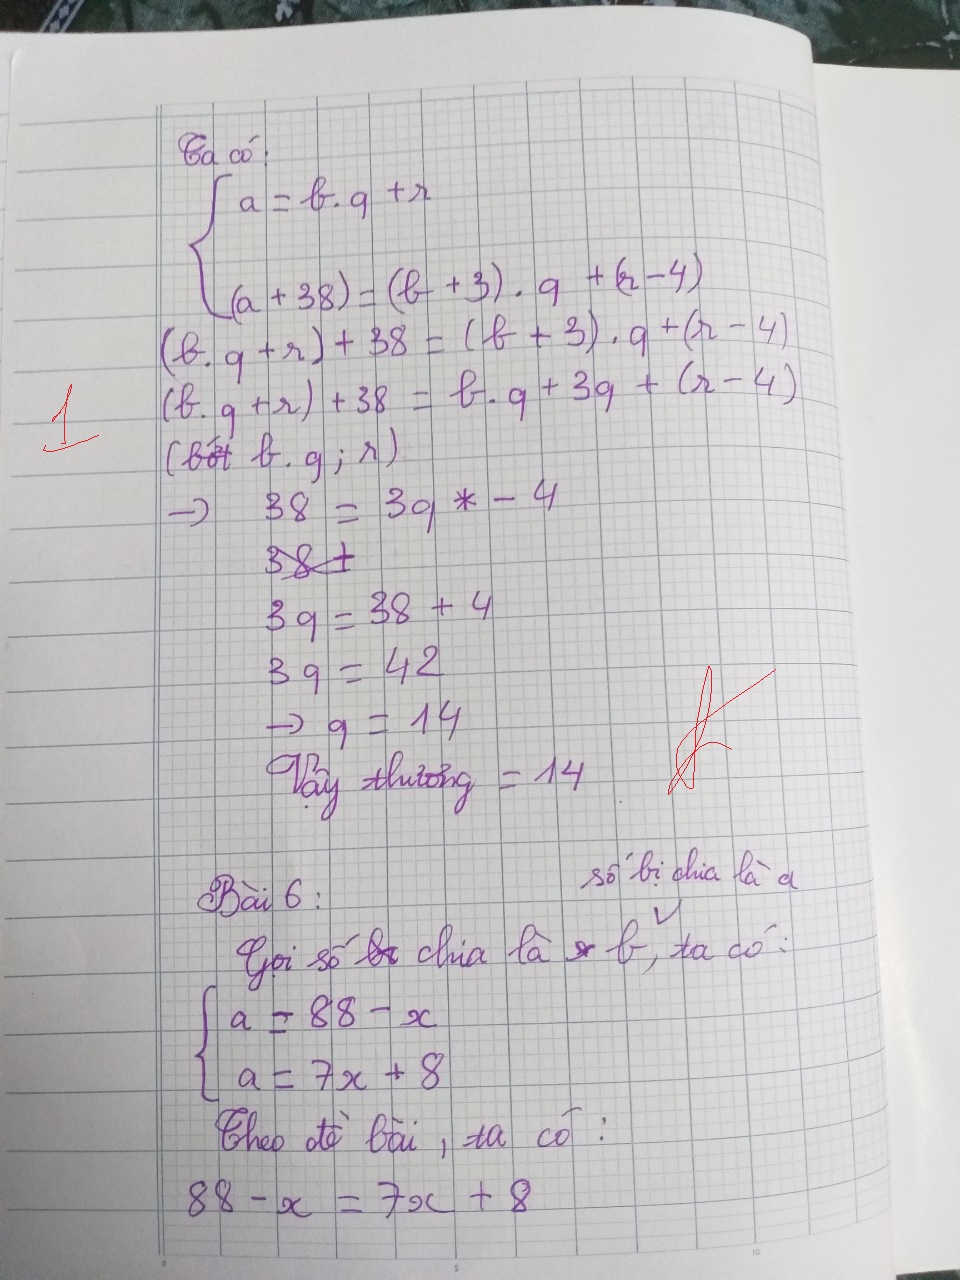 Ta có:
a = b.q + r
(a + 38) = (b + 3).q + (r - 4)
(b.q + r) + 38 = (b + 3).q + (r - 4)
1
(b.q + r) + 38 = b.q + 3q + (r - 4)
(bớt b.q; r)
→ 38 = 3q - 4
3q = 38 + 4
3q = 42
→ q = 14
Vậy thương = 14
số bị chia là a
Bài 6:
Gọi số chia là b, ta có:
a = 88 - x
a = 7x + 8
Theo đề bài, ta có:
88 - x = 7x + 8
0 5 10